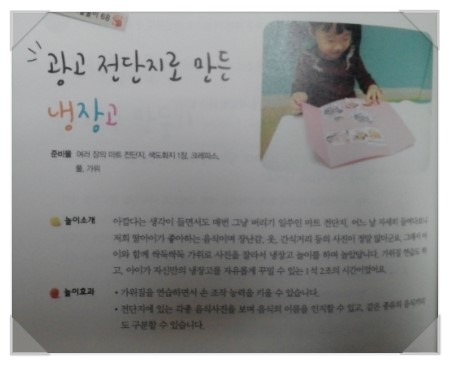 광고 전단지로 만든
냉장고
준비물 여러 장의 마트 전단지, 색도화지 1장, 크레파스,
풀, 가위
놀이소개 아깝다는 생각이 들면서도 매번 그냥 버리기 일쑤인 마트 전단지. 어느 날 자세히
저희 딸아이가 좋아하는 음식이며 장난감, 옷, 간식거리 등의 사진이 정말 많더군요. 그래서 아
이와 함께 싹둑싹둑 가위로 사진을 잘라서 냉장고 놀이를 하며 놀았답니다. 가위질 연습도 하
고, 아이가 자신만의 냉장고를 자유롭게 꾸밀 수 있는 1석 2조의 시간이었어요.
놀이효과 • 가위질을 연습하면서 손 조작 능력을 키울 수 있습니다.
• 전단지에 있는 각종 음식사진을 보며 음식의 이름을 인지할 수 있고, 같은 종류의
도 구분할 수 있습니다.